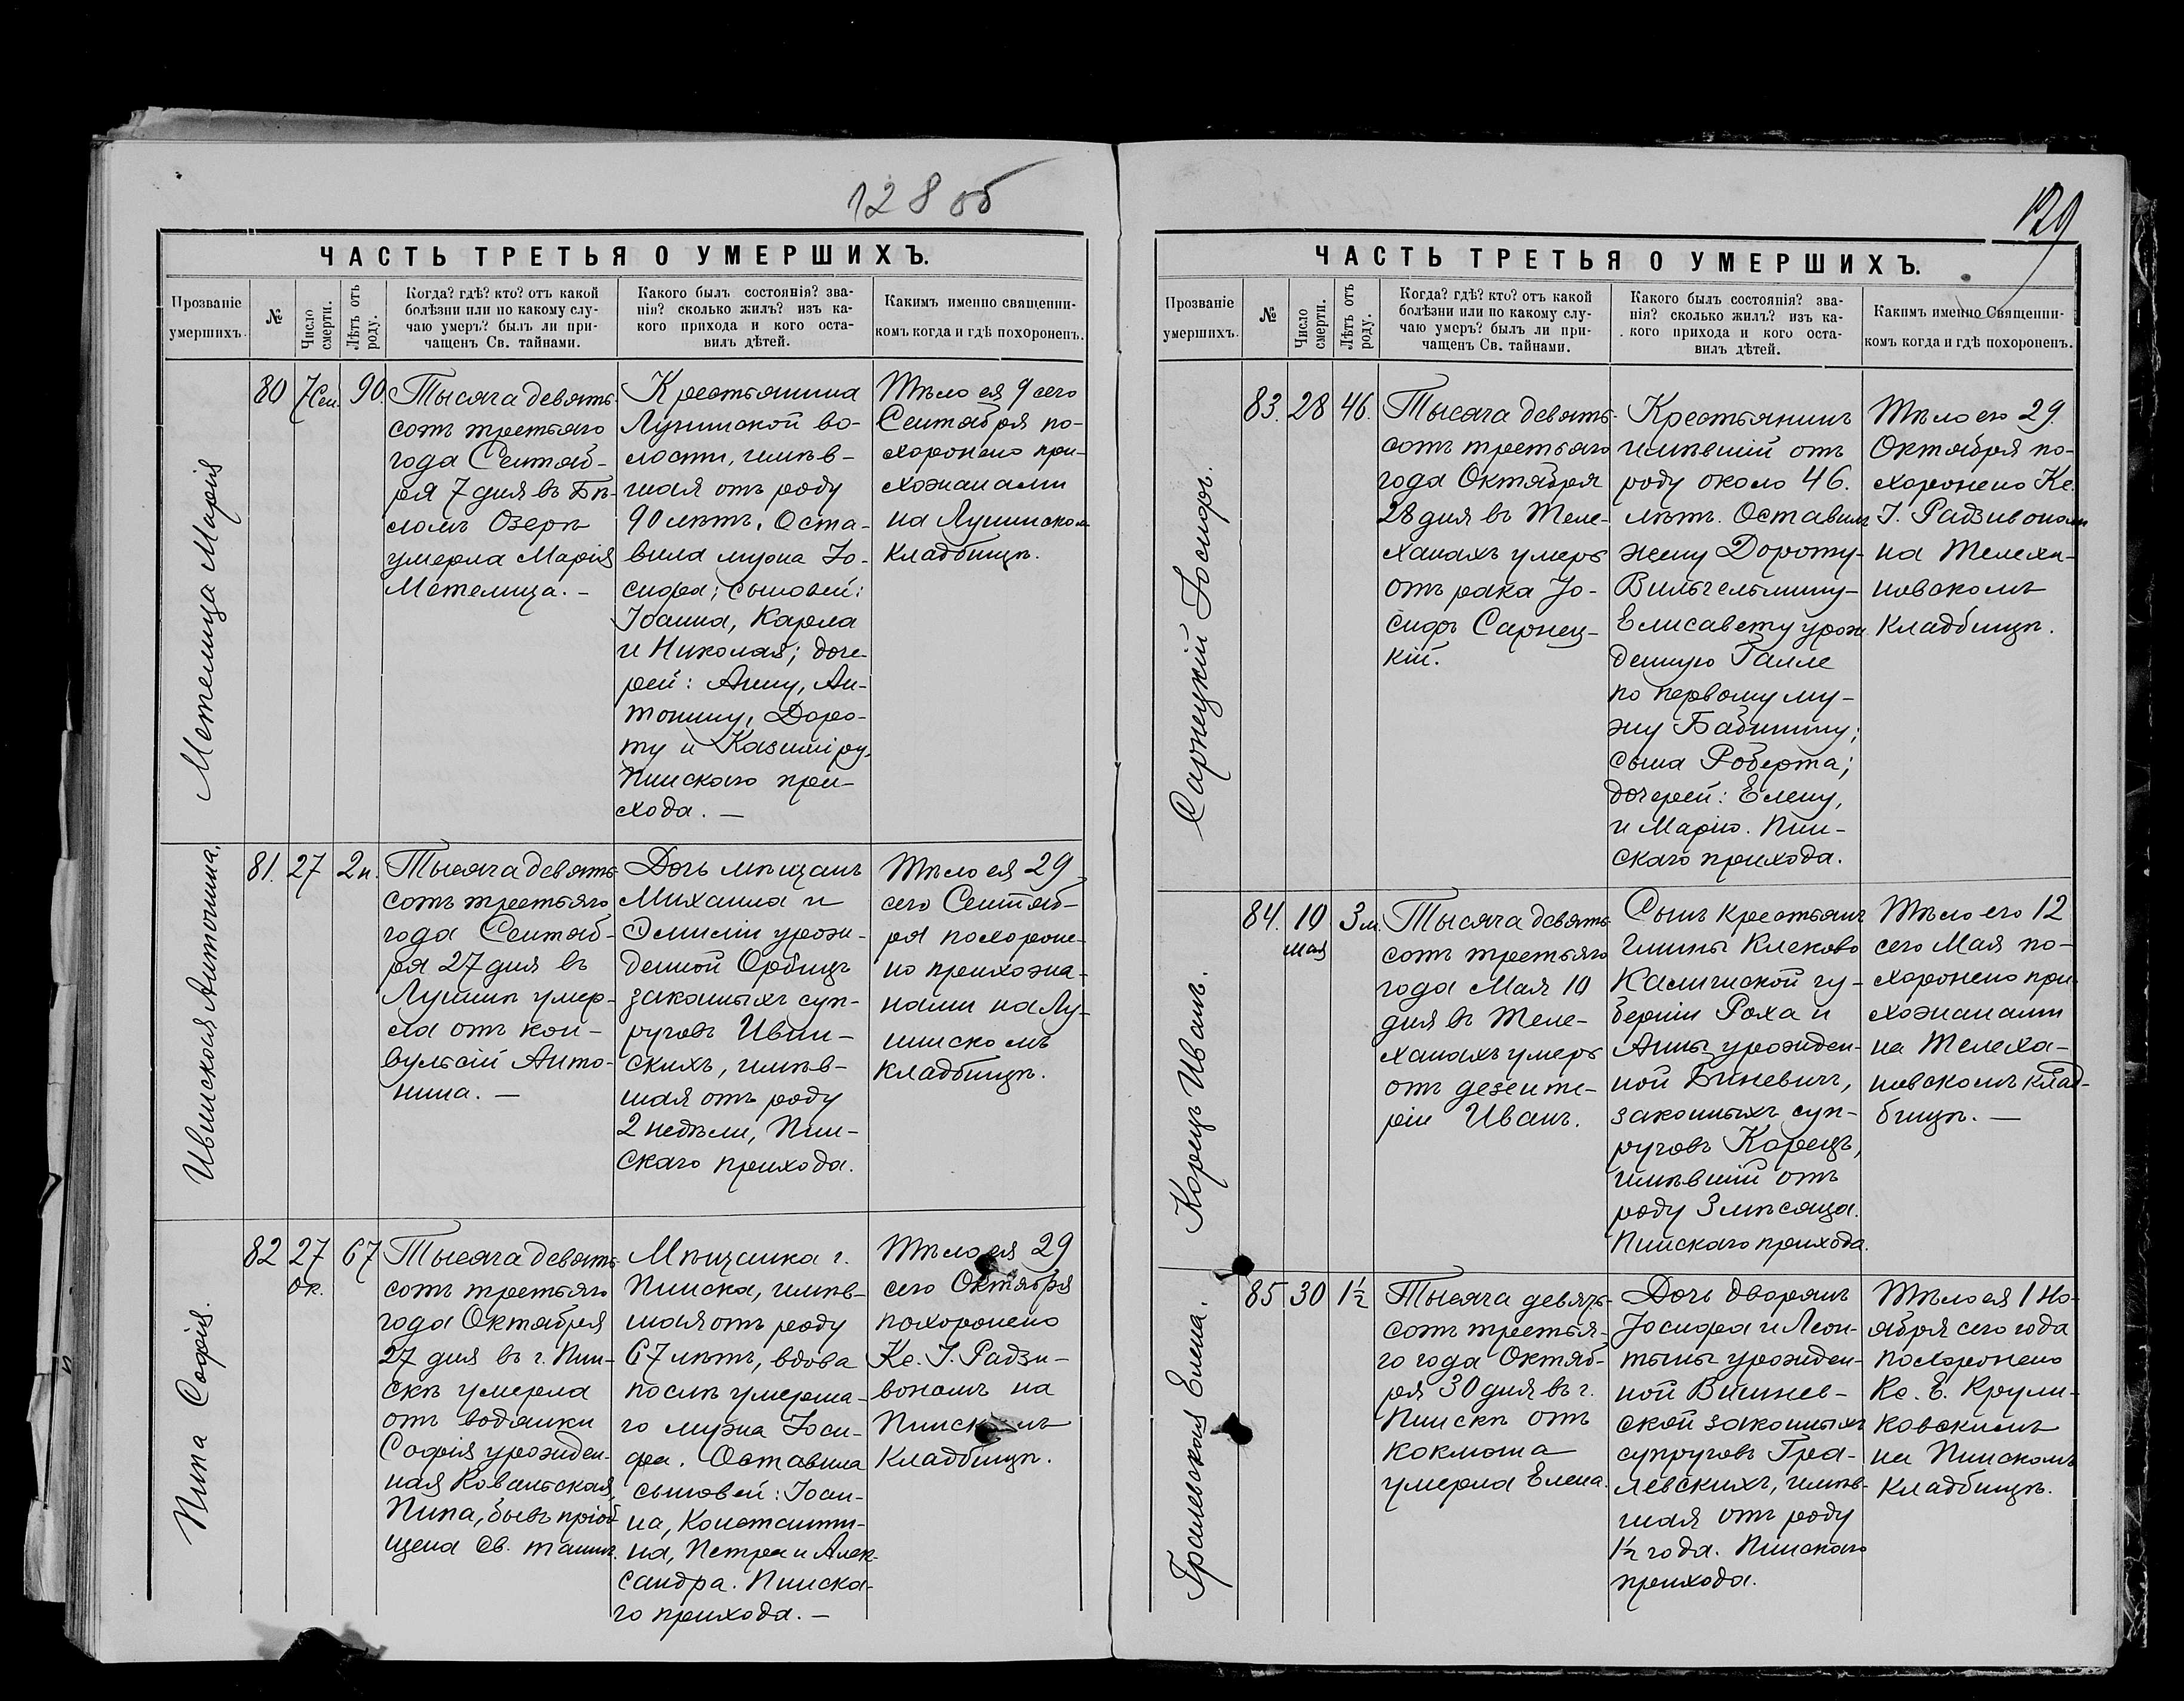 128 об
ЧАСТЬ ТРЕТЬЯ О УМЕРШИХЪ.
Прозваніе
умершихъ.
№
Число
смерти.
Лѣтъ отъ
роду.
Когда? гдѣ? кто? отъ какой
болѣзни или по какому слу-
чаю умеръ? былъ ли при-
чащенъ Св. тайнами.
Какого былъ состоянія? зва-
нія? сколько жилъ? изъ ка-
кого прихода и кого оста-
вилъ дѣтей.
Какимъ именно священни-
комъ когда и гдѣ похороненъ.
Метелица Марія
80
7 Сен.
90.
Тысяча девять-
сотъ третьяго
года Сентяб-
ря 7 дня въ Бѣ-
ломъ Озерѣ
умерла Марія
Метелица. —
Крестьянина
Лунинской во-
лости, имѣв-
шая отъ роду
90 лѣтъ. Оста-
вила мужа Іо-
сифа; сыновей:
Іоанна, Карла
и Николая; доче-
рей: Анну, Ан-
тонину, Доро-
ту и Казиміру,
Пинскаго при-
хода. —
Тѣло ея 9 сего
Сентября по-
хоронено при-
хожанами
на Лунинском
кладбищѣ.
Ивинская Антонина.
81.
27
2 н.
Тысяча девять-
сотъ третьяго
года Сентяб-
ря 27 дня въ
Лунинѣ умер-
ла отъ кон-
вульсій Анто-
нина. —
Дочь мѣщанъ
Михаила и
Эмиліи урож-
денной Орбицъ
законныхъ суп-
руговъ Ивин-
скихъ, имѣв-
шая отъ роду
2 недѣли, Пин-
скаго прихода.
Тѣло ея 29
сего Сентяб-
ря похороне-
но прихожа-
нами на Лу-
нинскомъ
кладбищѣ.
Пипа Софія.
82
27
ок.
67
Тысяча девять-
сотъ третьяго
года Октября
27 дня въ г. Пин-
скѣ умерла
отъ водянки
Софія урожден-
ная Ковальская,
Пипа, бывъ пріоб-
щена Св. тайнъ.
Мѣщанка г.
Пинска, имѣв-
шая отъ роду
67 лѣтъ, вдова
послѣ умерша-
го мужа Іоси-
фа. Оставила
сыновей: Іоси-
на, Константи-
на, Петра и Алек-
сандра. Пинска-
го прихода. —
Тѣло ея 29
сего Октября
похоронено
Кс. І. Радзи-
вономъ на
Пинскомъ
кладбищѣ.
129
ЧАСТЬ ТРЕТЬЯ О УМЕРШИХЪ.
Прозваніе
умершихъ.
№
Число
смерти.
Лѣтъ отъ
роду.
Когда? гдѣ? кто? отъ какой
болѣзни или по какому слу-
чаю умеръ? былъ ли при-
чащенъ Св. тайнами.
Какого былъ состоянія? зва-
нія? сколько жилъ? изъ ка-
кого прихода и кого оста-
вилъ дѣтей.
Какимъ именно Священни-
комъ когда и гдѣ похороненъ.
Сарнецкій Іосифъ.
83.
28
46.
Тысяча девять-
сотъ третьяго
года Октября
28 дня въ Теле-
ханахъ умеръ
отъ рака Іо-
сифъ Сарнец-
кій.
Крестьянинъ
имѣвшій отъ
роду около 46.
лѣтъ. Оставилъ
жену Дороту-
Вильгельмину-
Елисавету урож
денную Галле
по первому му-
жу Бабинину;
сына Роберта;
дочерей: Елену,
и Марію. Пин-
скаго прихода.
Тѣло его 29.
Октября по-
хоронено Кс.
І. Радзивономъ
на Телеха-
новскомъ
кладбищѣ.
Корецъ Иванъ.
84.
10
мая
3 м.
Тысяча девять-
сотъ третьяго
года Мая 10
дня въ Теле-
ханахъ умеръ
отъ дезенте-
ріи Иванъ.
Сынъ крестьянъ
гмины Клеково
Калишской гу-
берніи Роха и
Анны урожден-
ной Биневичъ,
законныхъ суп-
руговъ Корецъ,
имѣвшій отъ
роду 3 мѣсяца.
Пинскаго прихода.
Тѣло его 12
сего Мая по-
хоронено при-
хожанами
на Телеха-
новскомъ клад-
бищѣ. —
Гралевская Елена.
85
30
1½
Тысяча девять-
сотъ третья-
го года Октяб-
ря 30 дня въ г.
Пинскѣ отъ
коклюша
умерла Елена.
Дочь дворянъ
Іосифа и Леон-
тины урожден-
ной Вишнев-
ской законныхъ
супруговъ Гра-
левскихъ, имѣв-
шая отъ роду
1½ года. Пинскаго
прихода.
Тѣло ея 1 Но-
ября сего года
похоронено
Кс. Е. Крули-
ковскимъ
на Пинскомъ
кладбищѣ.